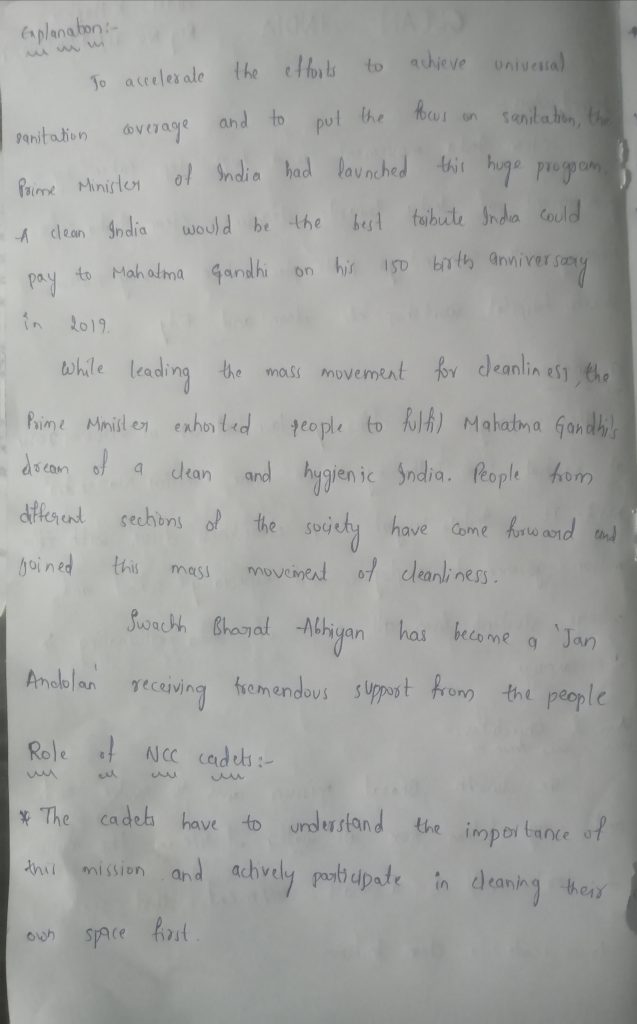 Explanation:-
To accelerate the efforts to achieve universal
sanitation coverage and to put the focus on sanitation, the
Prime Minister of India had launched this huge program.
A clean India would be the best tribute India could
pay to Mahatma Gandhi on his 150 birth anniversary
in 2019.
While leading the mass movement for cleanliness, the
Prime Minister exhorted people to fulfil Mahatma Gandhi's
dream of a clean and hygienic India. People from
different sections of the society have come forward and
joined this mass movement of cleanliness.
Swachh Bharat Abhiyan has become a 'Jan
Andolan' receiving tremendous support from the people
Role of NCC cadets:-
* The cadets have to understand the importance of
this mission and actively participate in cleaning their
own space first.